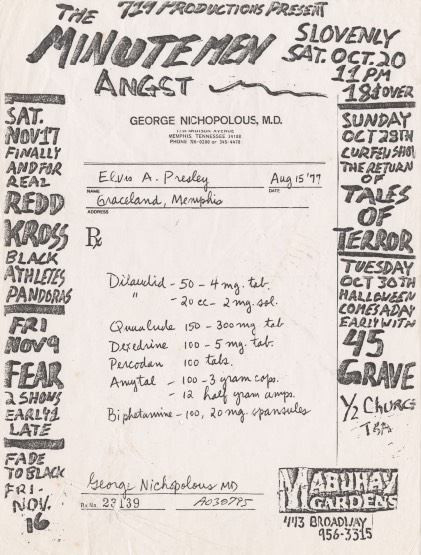 719 PRODUCTIONS PRESENT
THE
MINUTEMEN
ANGST
SLOVENLY
SAT. OCT. 20
11 PM
18 & OVER
SAT.
NOV 17
FINALLY
AND FOR
REAL
REDD
KROSS
BLACK
ATHLETES
PANDORAS
FRI
NOV 9
FEAR
2 SHOWS
EARLY &
LATE
FADE
TO BLACK
FRI-
NOV.
16
GEORGE NICHOPOLOUS, M.D.
MADISON AVENUE
MEMPHIS, TENNESSEE
PHONE
Elvis A. Presley Aug 15 '77
NAME DATE
Graceland, Memphis
ADDRESS
Rx
Dilaudid - 50 - 4 mg. tab.
" - 20 cc - 2 mg. sol.
Quaalude 150 - 300 mg tab
Dexedrine 100 - 5 mg. tab.
Percodan 100 tabs.
Amytal - 100 - 3 gram caps.
- 12 half gram amps.
Biphetamine - 100, 20 mg spansules
George Nichopolous MD
Rx No. 23139 AO30795
SUNDAY
OCT 28TH
CURFEW SHOW
THE RETURN
OF
TALES
OF
TERROR
TUESDAY
OCT 30TH
HALLOWEEN
COMES A DAY
EARLY WITH
45
GRAVE
1/2 CHURCH
TBA
MABUHAY
GARDENS
443 BROADWAY
956-3315